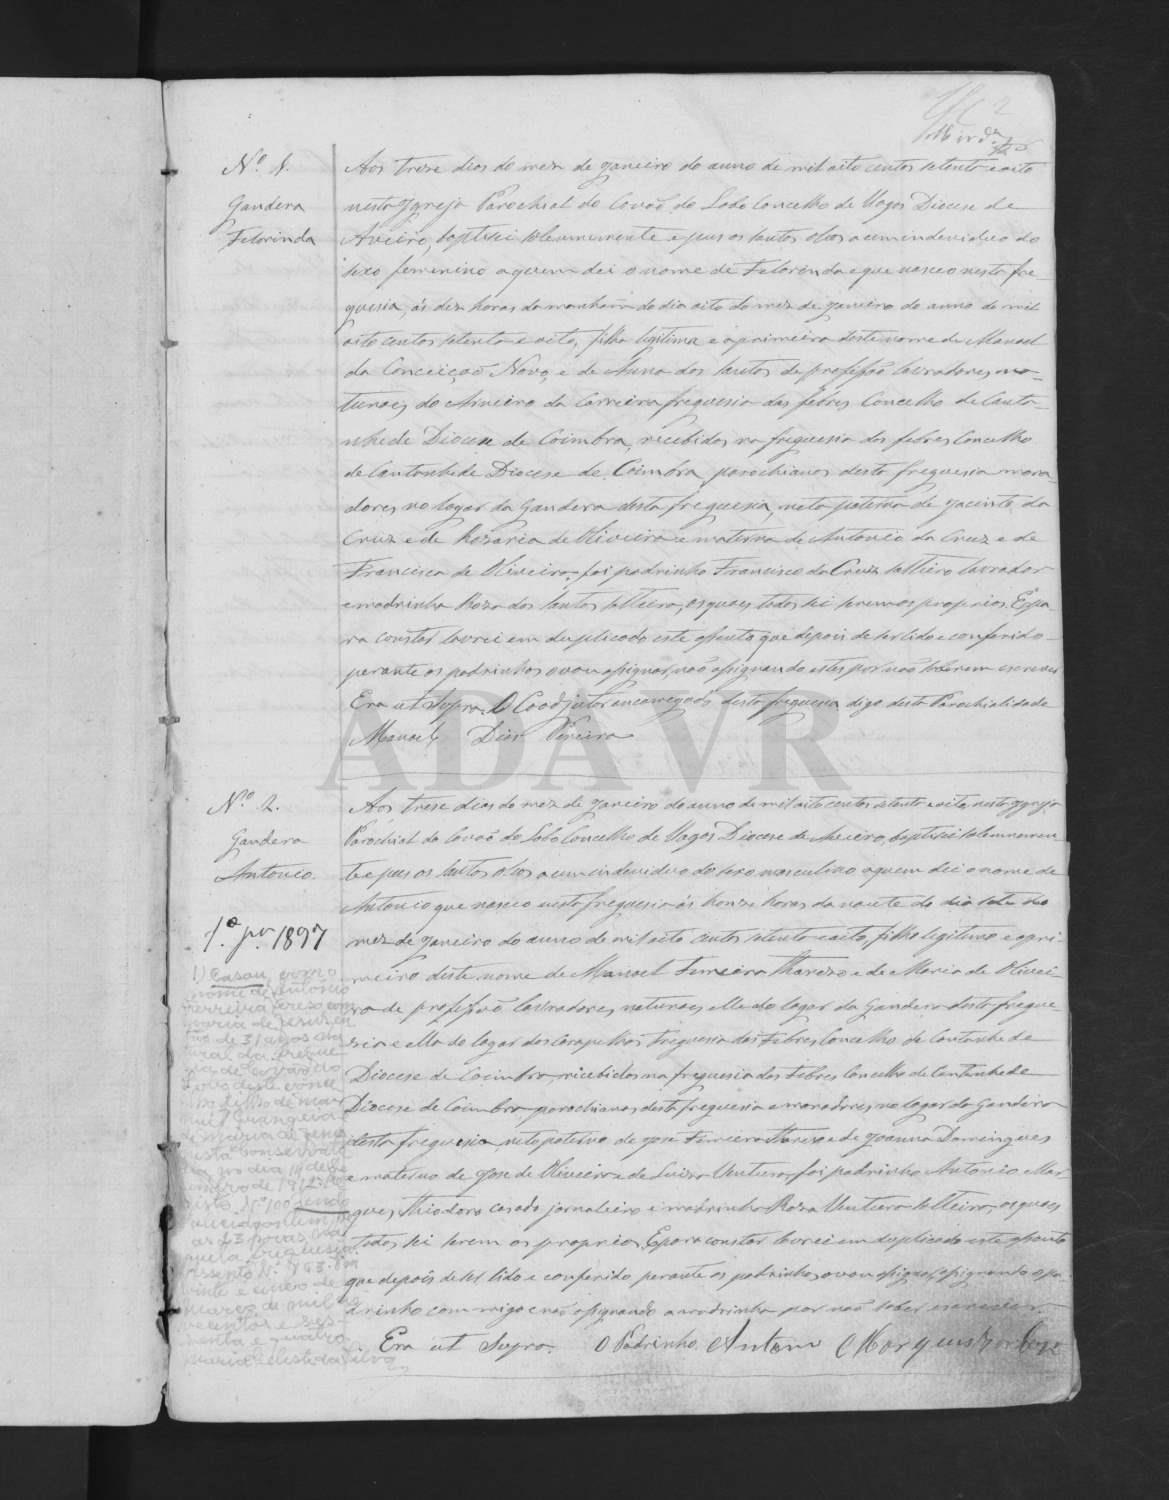 2
Nº 1.
Gandera
Felorinda
Aos treze dias do mez de Janeiro do anno de mil oito centos setenta e oito
nesta Igreja Parochial do Covaõ do Lobo Concelho de Vagos Diocese de
Aveiro, baptisei solemnemente e puz os santos oleos a um individuo do
sexo femenino a quem dei o nome de Felorinda e que nasceo nesta fre-
guesia, ás dez horas da manham do dia oito do mez de Janeiro do anno de mil
oito centos setenta e oito, filha legitima e a primeira deste nome de Manoel
da Conceiçaõ Novo, e de Anna dos Santos de profissaõ lavradores, na-
turaes do Arneiro da Carreira freguesia das Febres Concelho de Canta-
nhede Diocese de Coimbra, recebidos na freguesia das febres Concelho
de Cantanhede Diocese de Coimbra, parochianos desta freguesia mora-
dores no logar da Gandera desta freguesia, neta paterna de Jacinto da
Cruz e de Rozaria de Oliveira e materna de Antonio da Cruz e de
Francisca de Oliveira, foi padrinho Francisco da Cruz solteiro lavrador
e madrinha Roza dos Santos solteira, os quaes todos sei serem os proprios. E pa-
ra constar lavrei em duplicado este assento que depois de ser lido e conferido
perante os padrinhos o vou assignar, naõ assignando estes por naõ saberem escrever
Era ut supra. O Coadjutor encarregado desta freguesia digo desta Parochialidade
Manoel Dias Pereira
ADAVR
Nº 2.
Gandera
Antonio.
Aos treze dias do mez de Janeiro do anno de mil oito centos setenta e oito, nesta Igreja
Parochial do Covaõ do Lobo Concelho de Vagos Diocese de Aveiro, baptisei solemnemen-
te e puz os santos oleos a um individuo do sexo masculino a quem dei o nome de
Antonio que nasceo nesta freguesia ás honze horas da noute do dia sete do
mez de Janeiro do anno de mil oito centos setenta e oito, filho legitimo e o pri-
meiro deste nome de Manoel Ferreira Thereso e de Maria de Olivei-
ra de profissaõ lavradores, naturaes elle do logar da Gandera desta fregue-
sia e ella do logar dos Carapelhos freguesia das Febres Concelho de Cantanhede
Diocese de Coimbra, recebidos na freguesia das Febres Concelho de Cantanhede
Diocese de Coimbra parochianos desta freguesia e moradores, no logar da Gandera
desta freguesia, neto paterno de José Ferreira Thereso e de Joanna Domingues
e materno de José de Oliveira e de Luiza Ventura, foi padrinho Antonio Mar-
ques Theodoro casado jornaleiro e madrinha Roza Ventura solteira, os quaes
todos sei serem os proprios. E para constar lavrei em duplicado este assento
que depois de ser lido e conferido perante os padrinhos o vou assignar, assignando o pa-
drinho commigo e naõ assignando a madrinha por naõ saber escrever.
Era ut supra. O Padrinho Antonio Marques
1.ª 1897
1) Casou, com o
nome de Antonio
Ferreira Tereso com
Maria de Jesus, en
tão de 31 anos, na
tural da fregue
sia de Covão do
Lobo deste conce
lho, filha de Ma
nuel
e Maria de Jesus
nesta conservató
ria no dia 14 de
de 1912.
Nº 100
vinte e cinco de
março de mil no
vecentos e ses-
senta e quatro.
Maria Celeste da Silva